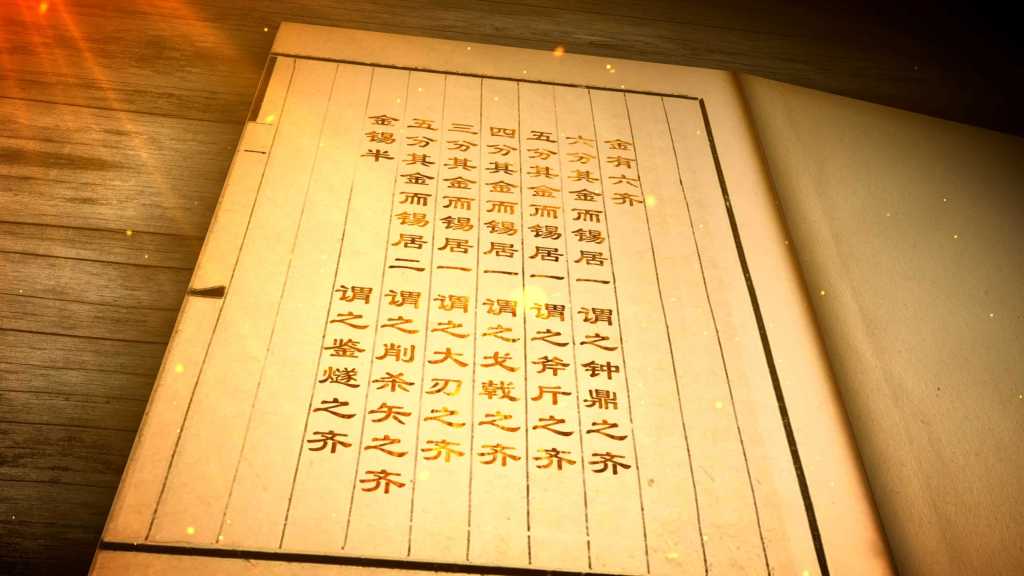 金有六齐
六分其金而锡居一 谓之钟鼎之齐
五分其金而锡居一 谓之斧斤之齐
四分其金而锡居一 谓之戈戟之齐
三分其金而锡居一 谓之大刃之齐
五分其金而锡居二 谓之削杀矢之齐
金锡半 谓之鉴燧之齐
一